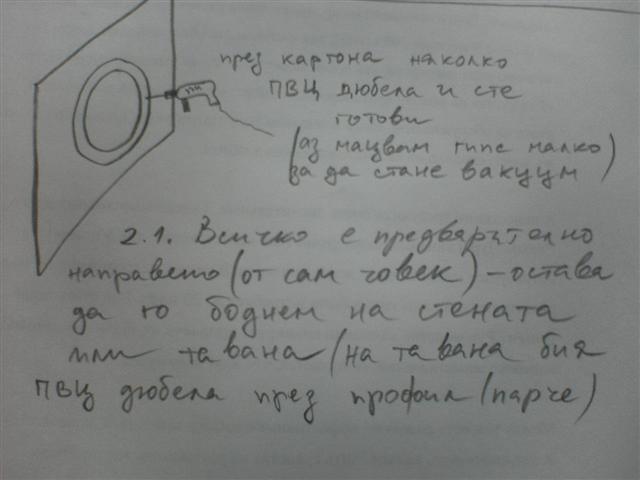 през картона няколко
ПВЦ дюбела и сте
готови
(аз мацвам гипс малко)
за да стане вакуум
2.1. Всичко е предварително
направено (от сам човек) - остава
да го боднем на стената
или тавана (на тавана бия
ПВЦ дюбела през профил (парче)